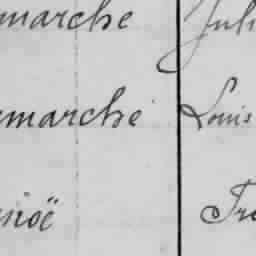 marche Juli
emarché Louis
noë Fra